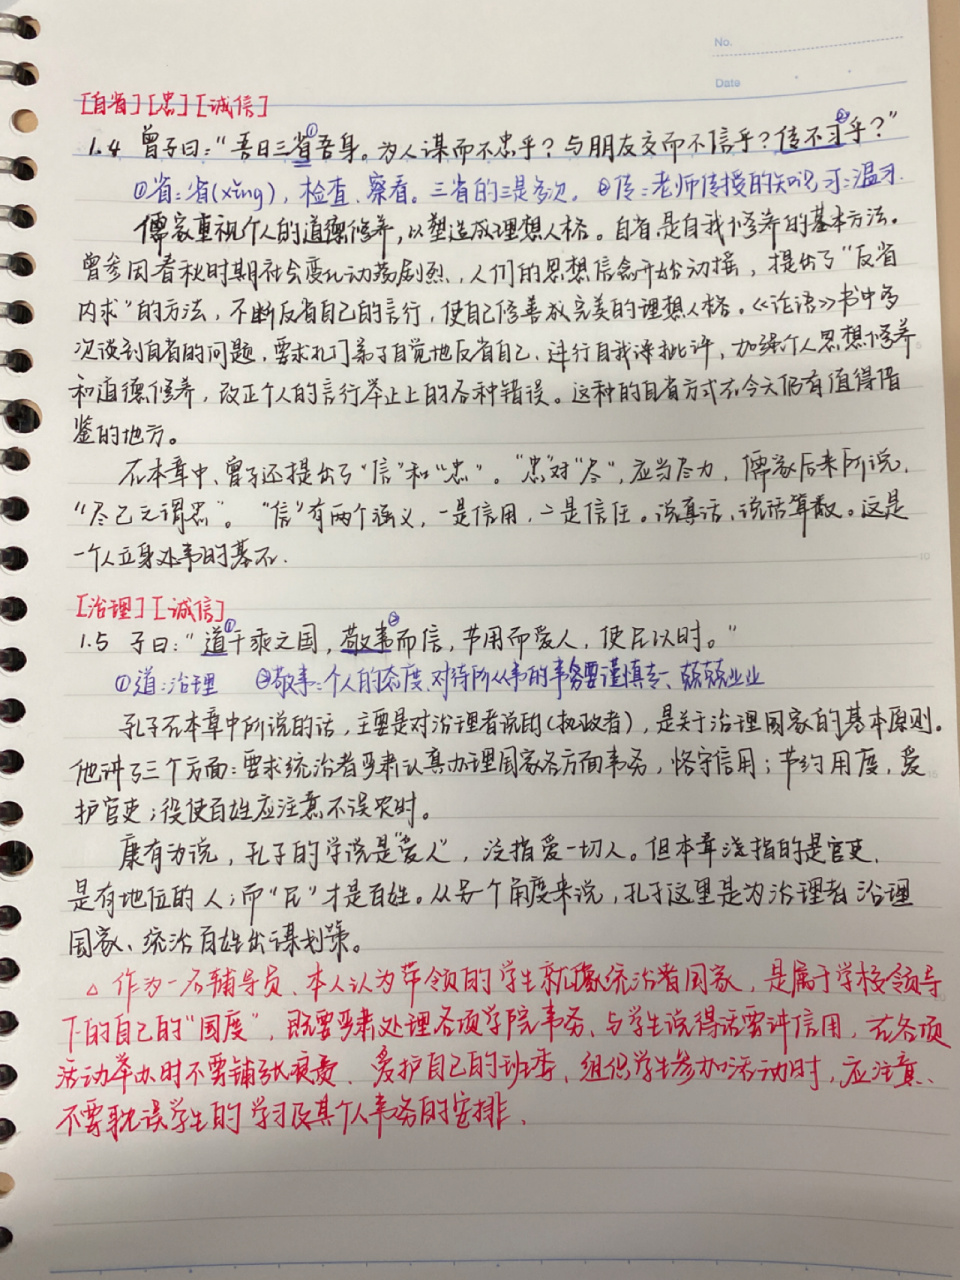 No.
Date
[自省][忠][诚信]
1.4 曾子曰:“吾日三省①吾身。为人谋而不忠乎?与朋友交而不信乎?传不习②乎?”
①省:省(xǐng),检查、察看。三省的三是多次。②传:老师传授的知识,习:温习.
儒家重视个人的道德修养,以塑造成理想人格。自省,是自我修养的基本方法。
曾参因春秋时期社会变化动荡剧烈,人们的思想信念开始动摇,提出了“反省
内求”的方法,不断反省自己的言行,使自己修善成完美的理想人格。《论语》书中多
次谈到自省的问题,要求孔门弟子自觉地反省自己、进行自我批评,加强个人思想修养
和道德修养,改正个人的言行举止上的各种错误。这种的自省方式在今天仍有值得借
鉴的地方。
在本章中、曾子还提出了“信”和“忠”。“忠”对“尽”,应当尽力,儒家后来所说,
“尽己之谓忠”。“信”有两个涵义,一是信用,二是信任。说真话、说话算数。这是
一个人立身处事的基石.
[治理][诚信]
1.5 子曰:“道①千乘之国,敬事②而信,节用而爱人,使民以时。”
①道:治理 ②敬事:个人的态度、对待所从事的事务要谨慎专一、兢兢业业
孔子在本章中所说的话,主要是对治理者说的(执政者),是关于治理国家的基本原则.
他讲了三个方面:要求统治者严肃认真办理国家各方面事务,恪守信用;节约用度,爱
护官吏;役使百姓应注意不误农时。
康有为说,孔子的学说是“爱人”,泛指爱一切人。但本章泛指的是官吏、
是有地位的人;而“民”才是百姓。从另个角度来说,孔子这里是为治理者治理
国家、统治百姓出谋划策。
△ 作为一名辅导员、本人认为带领的学生就像统治者国家,是属于学校领导
下的自己的“国度”,既要严肃处理各项学院事务、与学生说得话要讲信用,在各项
活动举办时不要铺张浪费、爱护自己的班委、组织学生参加活动时,应注意、
不要耽误学生的学习及其个人事务的安排.